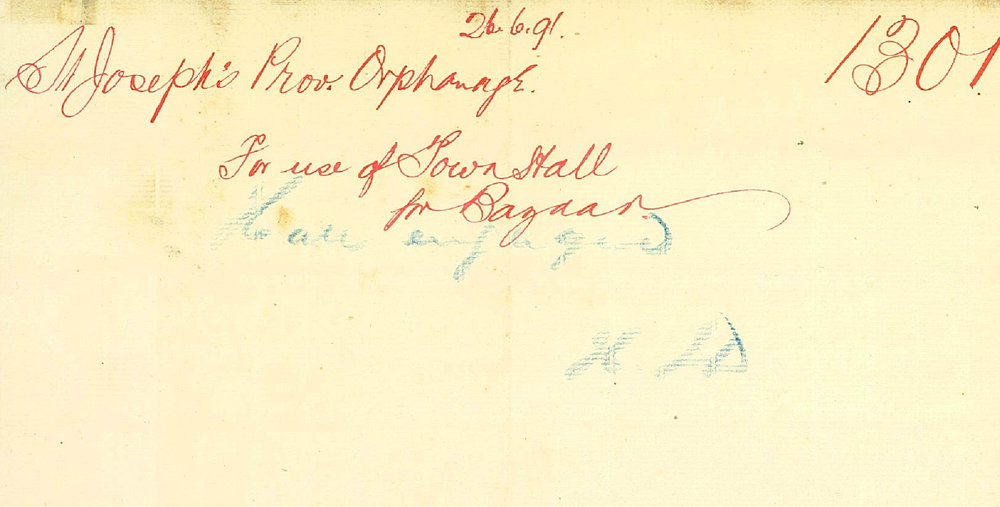 26.6.91.
St Joseph's Prov. Orphanage. 1301
For use of Town Hall
for Bazaar.
engaged